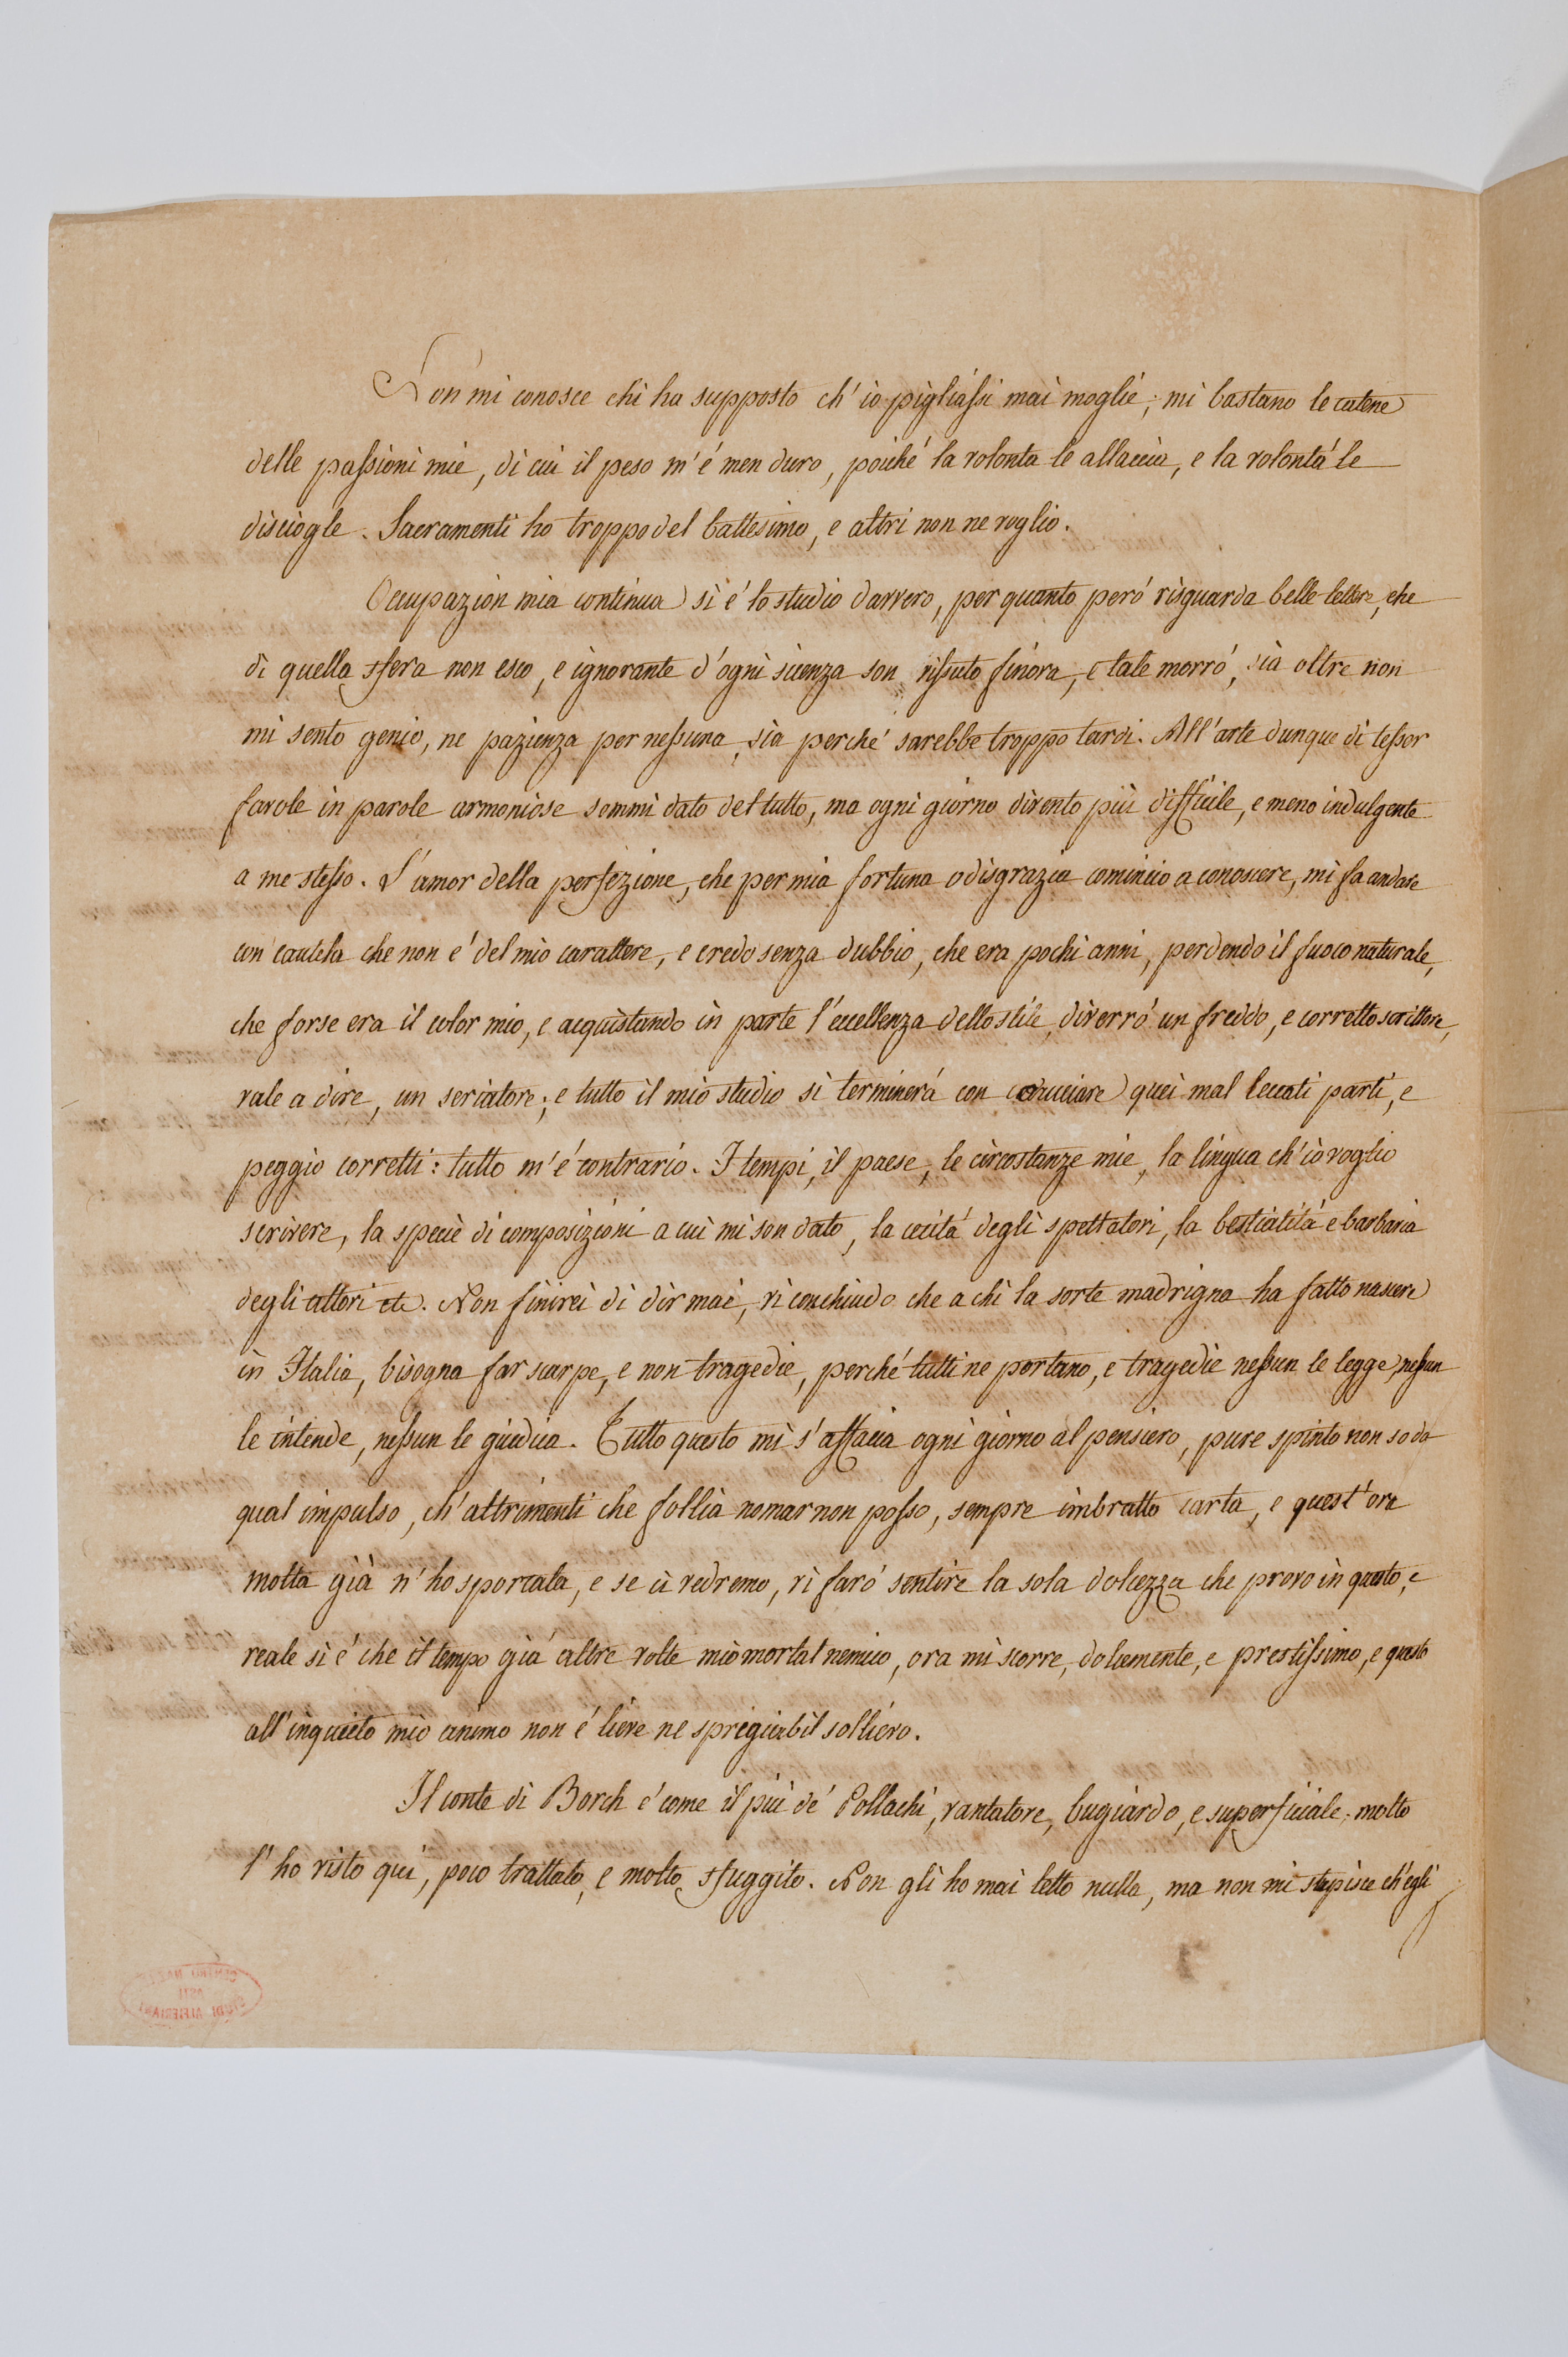 Non mi conosce chi ha supposto ch'io pigliassi mai moglie; mi bastano le catene
delle passioni mie, di cui il peso m'é men duro, poiché la volonta le allaccia, e la volontá le
discioglie. Sacramenti ho troppo del battesimo, e altri non ne voglio.
Occupazion mia continua si é lo studio davvero, per quanto peró risguarda belle lettere, che
di quella sfera non esco, e ignorante d'ogni scienza son vissuto finora, e tale morró, sia oltre non
mi sento genio, ne pazienza per nessuna, sia perché sarebbe troppo tardi. All'arte dunque di tessor
favole in parole armoniose sommi dato del tutto, ma ogni giorno divento più difficile, e meno indulgente
a me stesso. L'amor della perfezione, che per mia fortuna o disgrazia comincio a conoscere, mi fa andare
con cautela che non é del mio carattere, e credo senza dubbio, che era pochi anni, perdendo il fuoco naturale,
che forse era il color mio, e acquistando in parte l'eccellenza dello stile, diverró un freddo, e corretto scrittore,
vale a dire, un seccatore; e tutto il mio studio si terminerá con quei mal leccati parti, e
peggio corretti: tutto m'é contrario. I tempi, il paese, le circostanze mie, la lingua ch'io voglio
scrivere, la specie di composizioni a cui mi son dato, la cecitá degli spettatori, la bestialitá e barbaria
degli attori etc. Non finirei di dir mai, vi conchiudo che a chi la sorte madrigna ha fatto nascere
in Italia, bisogna far scarpe, e non tragedie, perché tutti ne portano, e tragedie nessun le legge, nessun
le intende, nessun le giudica. Tutto questo mi s'affacia ogni giorno al pensiero, pure spinto non so da
qual impulso, ch'altrimenti che follia nomar non posso, sempre imbratto carta, e quest'ora
molta già n'ho sporcata, e se ci vedremo, vi faró sentire la sola dolcezza che provo in questo, e
reale si é che il tempo giá altre volte mio mortal nemico, ora mi scorre, dolcemente, e prestissimo, e questo
all'inquieto mio animo non é lieve ne spregiabil sollievo.
Il conte di Borch é come il piú de' Pollachi, vantatore, bugiardo, e superficiale; molto
l'ho visto qui, poco trattato, e molto sfuggito. Non gli ho mai letto nulla, ma non mi stupisce ch'egli